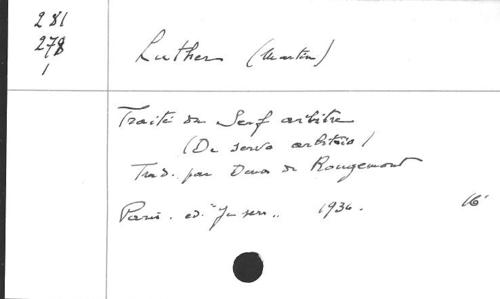 281
278
1
Luther (Martin)
Traité du Serf arbitre
(De servo arbitrio)
Trad. par Denis de Rougemont
Paris. ed. "Je sers". 1936. 16°